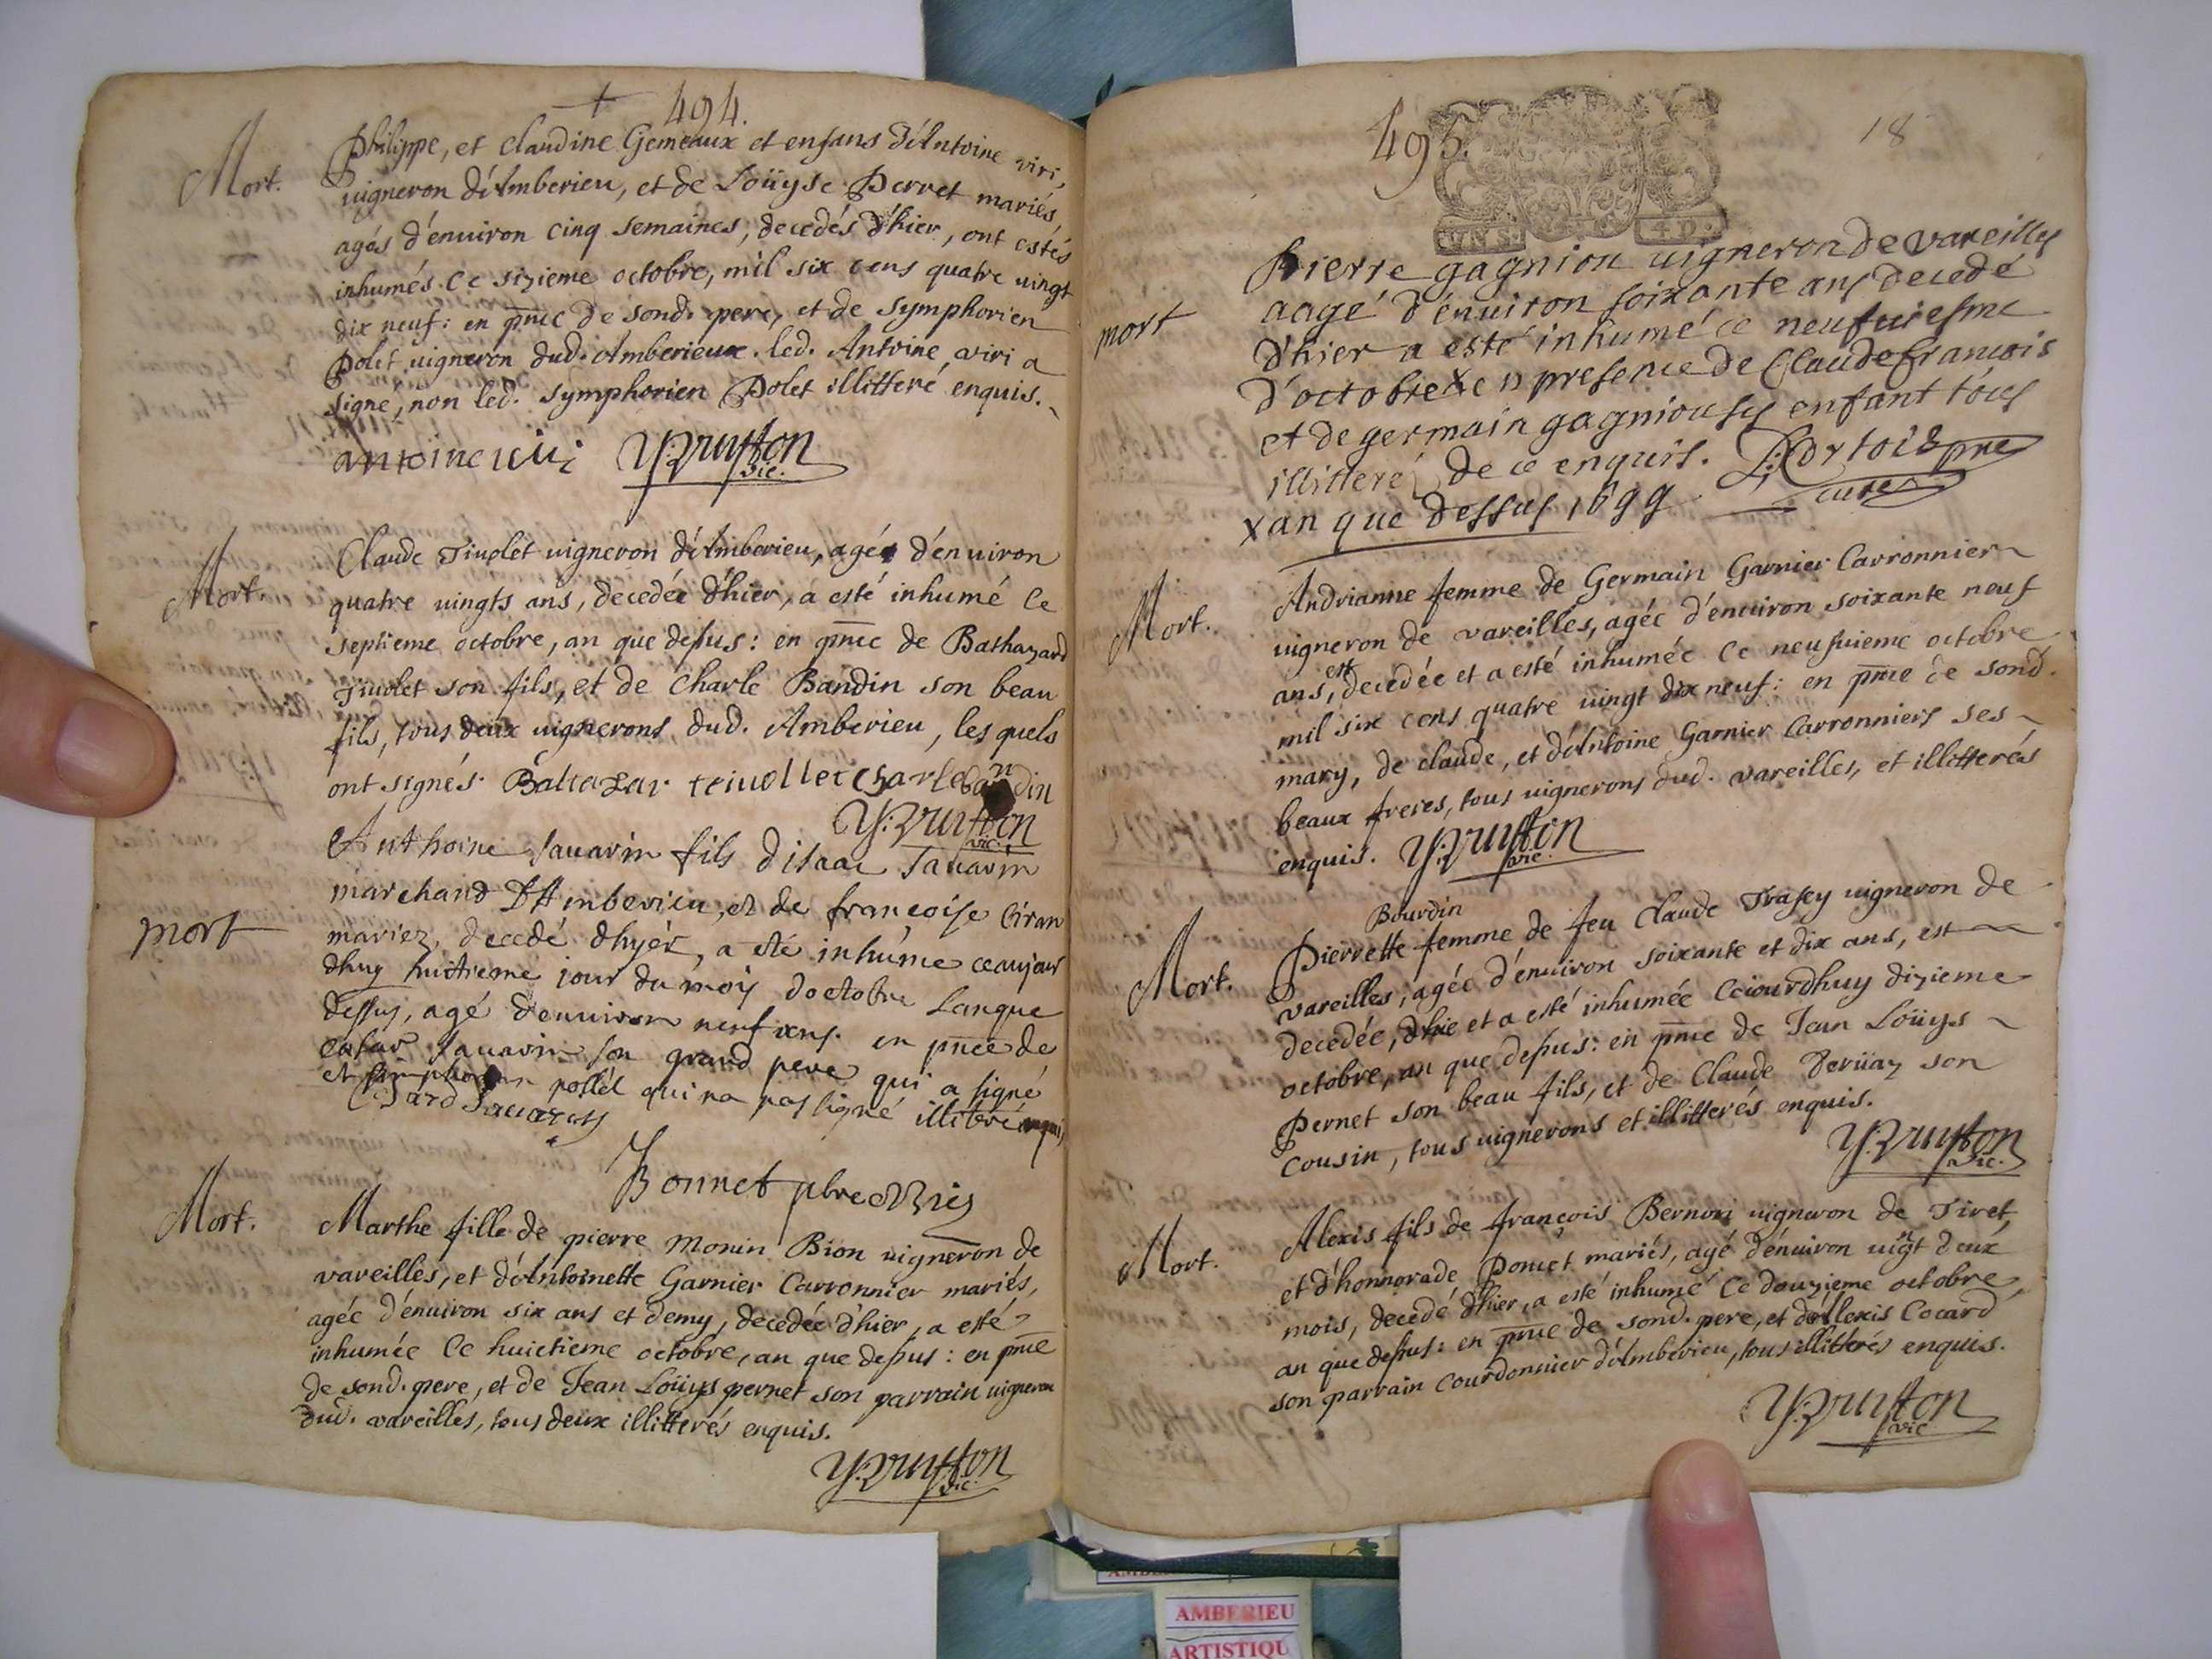 494.
Mort.
Philippe, et Claudine Gemeaux et enfans d'Antoine viri,
vigneron d'Amberieu, et de Loüyse Perret mariés
agés d'enuiron cinq semaines, decedés d'hier, ont estés
inhumés ce sizieme octobre, mil six cens quatre vingt
dix neuf: en pnce de sond. pere, et de Symphorien
Polet vigneron dud. Amberieux. led. Antoine viri a
signe, non led. Symphorien Polet illitteré enquis.
antoine viri
vic.
Mort.
Claude Tiuolet vigneron d'Amberieu, agé d'enuiron
quatre uingts ans, decedée d'hier, a esté inhumé le
septieme octobre, an que depus: en pnce de Bathazard
Tiuolet son fils, et de Charle Bandin son beau
fils, tous deux vignerons dud. Amberieu, les quels
ont signés. Baltazar teiuollet Charle bandin
vic.
mort
Anthoine Sauarin fils disaac Sauarin
marchand D'Amberieu, et de francoise Ciran
mariez, decedé dhyér, a eté inhúme ceaujour
dhuy huitieme jour du moys doctobre Lanque
dessus, agé denuiron neuf ans. en pnce de
Sauarin son grand pere qui a signé
et pollet qui na pas signé illitéré enquis
Bonnet pbre
Mort.
Marthe fille de pierre Monin Bion vigneron de
vareilles, et d'Antoinette Garnier Carronnier mariés,
agée d'enuiron six ans et demy, decedée d'hier, a esté
inhumée le huictieme octobre, an que depus: en pnce
de sond. pere, et de Jean Loüys pernet son parrain vigneron
dud. vareilles, tous deux illitterés enquis.
vic.
495.
18
UN S. 4 D.
mort
Pierre gagnion vigneron de vareilles
aagé d'énuiron soixante ans decedé
d'hier a esté inhumé ce neufuiesme
d'octobre x en presence de Claude francois
et de germain gagnious ses enfant tous
illitteré de ce enquis.
x an que dessus 1699
curé
Mort.
Andrianne femme de Germain Garnier Carronnier
vigneron de vareilles, agée d'enuiron soixante neuf
ans, est decedée et a esté inhumée le neufuieme octobre
mil six cens quatre vingt dix neuf: en pnce de sond.
mary, de claude, et d'Antoine Garnier Carronniers ses
beaux freres, tous vignerons dud. vareilles, et illitterés
enquis.
vic.
Mort.
Bourdin
Pierrette femme de feu Claude Trasey vigneron de
vareilles, agée d'enuiron soixante et dix ans, est
decedée, d'hie et a esté inhumée ceiourdhuy dizieme
octobre, an que depus: en pnce de Jean Loüys
Pernet son beau fils, et de Claude Deruaz son
Cousin, tous vignerons et illitterés enquis.
vic.
Mort.
Alexis fils de françois Bernon vigneron de Tiret,
et d'honnorade Poncet mariés, agé d'enuiron vingt deux
mois, decedé d'hier, a esté inhumé le douzieme octobre,
an que depus: en pnce de sond. pere, et d'Alexis Cocard
son parrain courdonnier d'Amberieu, tous illitterés enquis.
vic
AMBERIEU
ARTISTIQU